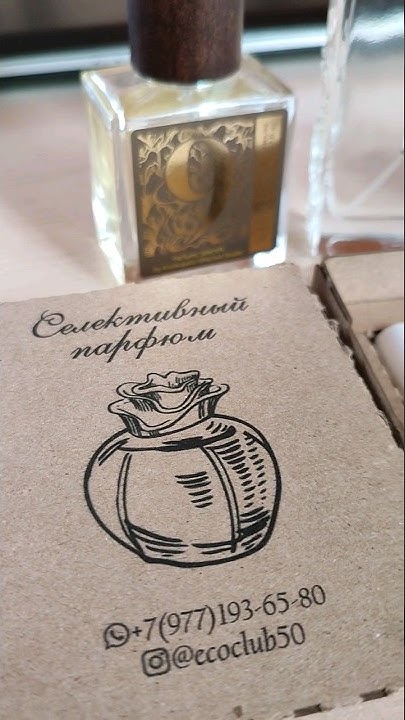 9
Селективный
парфюм
+7(977)193-65-80
@ecoclub50